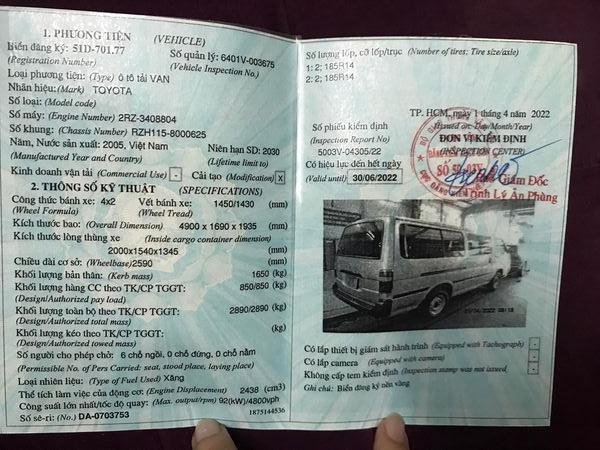 1. PHƯƠNG TIỆN (VEHICLE)
Biển đăng ký: 51D-701.77 Số quản lý: 6401V-003675
(Registration Number) (Vehicle Inspection No.)
Loại phương tiện: (Type) ô tô tải VAN
Nhãn hiệu: (Mark) TOYOTA
Số loại: (Model code)
Số máy: (Engine Number) 2RZ-3408804
Số khung: (Chassis Number) RZH115-8000625
Năm, Nước sản xuất: 2005, Việt Nam Niên hạn SD: 2030
(Manufactured Year and Country) (Lifetime limit to)
Kinh doanh vận tải (Commercial Use) - Cải tạo (Modification) X
2. THÔNG SỐ KỸ THUẬT (SPECIFICATIONS)
Công thức bánh xe: 4x2 Vết bánh xe: 1450/1430 (mm)
(Wheel Formula) (Wheel Tread)
Kích thước bao: (Overall Dimension) 4900 x 1690 x 1935 (mm)
Kích thước lòng thùng xe (Inside cargo container dimension)
2000x1540x1345 (mm)
Chiều dài cơ sở: (Wheelbase) 2590 (mm)
Khối lượng bản thân: (Kerb mass) 1650 (kg)
Khối lượng hàng CC theo TK/CP TGGT: 850/850 (kg)
(Design/Authorized pay load)
Khối lượng toàn bộ theo TK/CP TGGT: 2890/2890 (kg)
(Design/Authorized total mass)
Khối lượng kéo theo TK/CP TGGT: (kg)
(Design/Authorized towed mass)
Số người cho phép chở: 6 chỗ ngồi, 0 chỗ đứng, 0 chỗ nằm
(Permissible No. of Pers Carried: seat, stood place, laying place)
Loại nhiên liệu: (Type of Fuel Used) Xăng
Thể tích làm việc của động cơ: (Engine Displacement) 2438 (cm3)
Công suất lớn nhất/tốc độ quay: (Max. output/rpm) 92(kW)/4800vph
Số sê-ri: (No.) DA-0703753 1875144536
Số lượng lốp, cỡ lốp/trục (Number of tires; Tire size/axle)
1: 2; 185R14
2: 2; 185R14
TP. HCM, ngày 1 tháng 4 năm 2022
(Issued on: Day/Month/Year)
Số phiếu kiểm định ĐƠN VỊ KIỂM ĐỊNH
(Inspection Report No) (INSPECTION CENTER)
5003V-04305/22
Có hiệu lực đến hết ngày
(Valid until) 30/06/2022
Giám Đốc
Trịnh Lý Ân Phùng
Có lắp thiết bị giám sát hành trình (Equipped with Tachograph) -
Có lắp camera (Equipped with camera) -
Không cấp tem kiểm định (Inspection stamp was not issued) -
Ghi chú: Biển đăng ký nền vàng